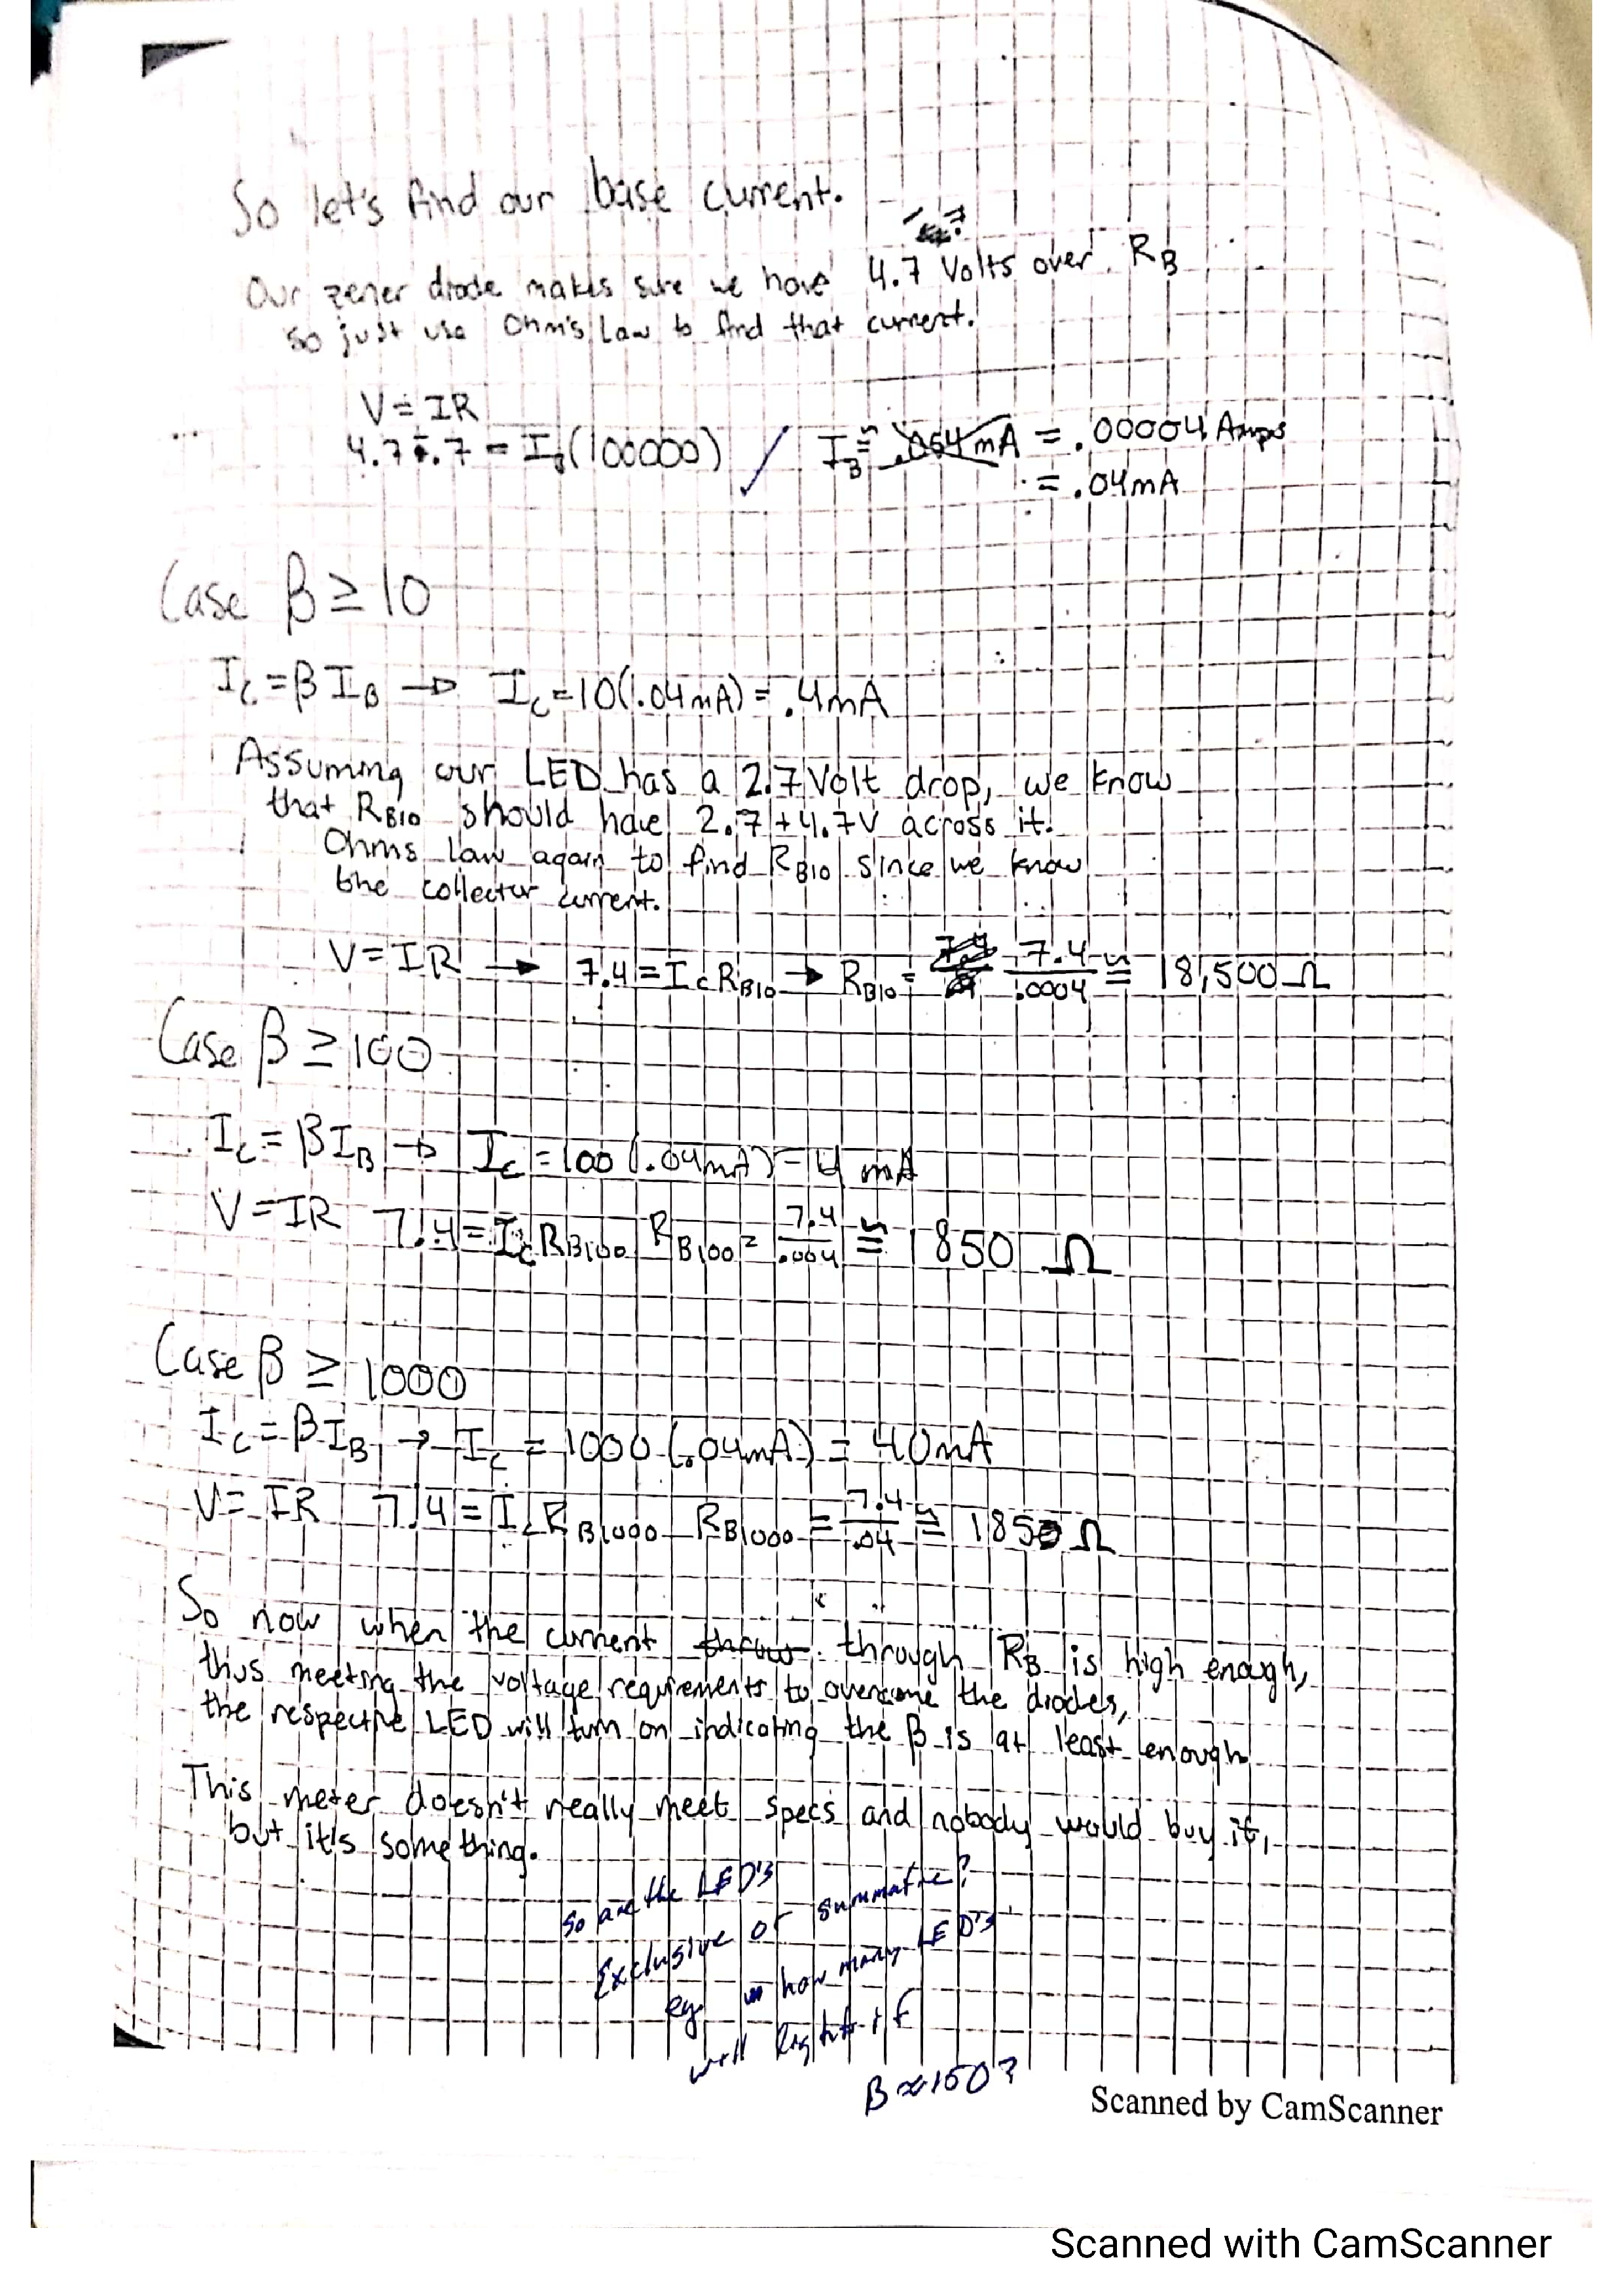 So let's find our base current.
Our zener diode makes sure we have 4.7 Volts over RB
so just use Ohm's Law to find that current.
V = IR
4.7-.7 = IB(100000) / IB ≅ .054mA = .00004 Amps
= .04mA
Case β ≥ 10
Ic = β IB → Ic = 10(.04mA) = .4mA
Assuming our LED has a 2.7 Volt drop, we know
that RB10 should have 2.7 + 4.7V across it.
Ohms law again to find RB10 since we know
the collector current.
V = IR → 7.4 = Ic RB10 → RB10 = 7.4/.0004 ≅ 18,500 Ω
Case β ≥ 100
Ic = β IB → Ic = 100 (.04mA) = 4 mA
V = IR 7.4 = Ic RB100 RB100 = 7.4/.004 ≅ 1850 Ω
Case β ≥ 1000
Ic = β IB → Ic = 1000 (.04mA) = 40mA
V = IR 7.4 = Ic RB1000 RB1000 = 7.4/.04 ≅ 1850 Ω
So now when the current through RB is high enough,
thus meeting the voltage requirements to overcome the diodes,
the respective LED will turn on indicating the β is at least enough
This meter doesn't really meet specs and nobody would buy it,
but it's something.
So are the LED's
Exclusive or summative?
eg how many LED's
will light if
β ≈ 150?
Scanned by CamScanner
Scanned with CamScanner